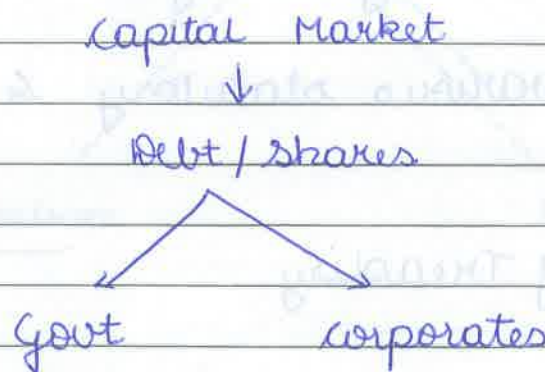 Capital Market
↓
Debt / shares
Govt corporates